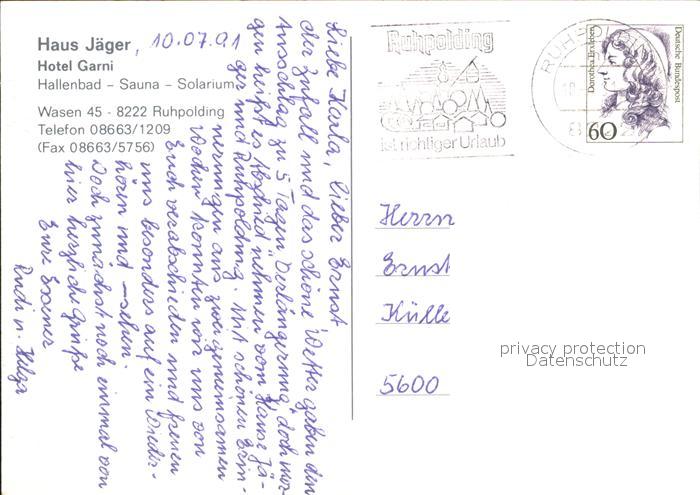 Haus Jäger, 10.07.91
Hotel Garni
Hallenbad – Sauna – Solarium
Wasen 45 · 8222 Ruhpolding
Telefon 08663/1209
(Fax 08663/5756)
Liebe Karla, lieber Ernst,
der Zufall und das schöne Wetter gaben den
Ausschlag zu 5 Tagen „Verlängerung“, doch mor-
gen heißt es Abschied nehmen vom Hause Jä-
ger und Ruhpolding. Mit schönen Erin-
nerungen aus zwei gemeinsamen
Wochen konnten wir uns von
Euch verabschieden und freuen
uns besonders auf ein Wieder-
hören und –sehen.
Doch zunächst noch einmal von
hier herzliche Grüße
Eure Essener
Rudi u. Helga
Ruhpolding
ist richtiger Urlaub
RUHPOLDING
Deutsche Bundespost
Dorothea Erxleben
60
Herrn
Ernst
Külle
5600
privacy protection
Datenschutz